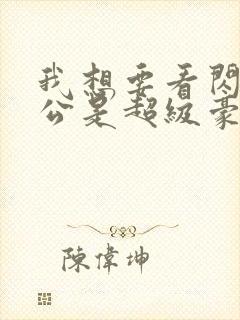 我想要看閃
公是超級豪
陳偉坤